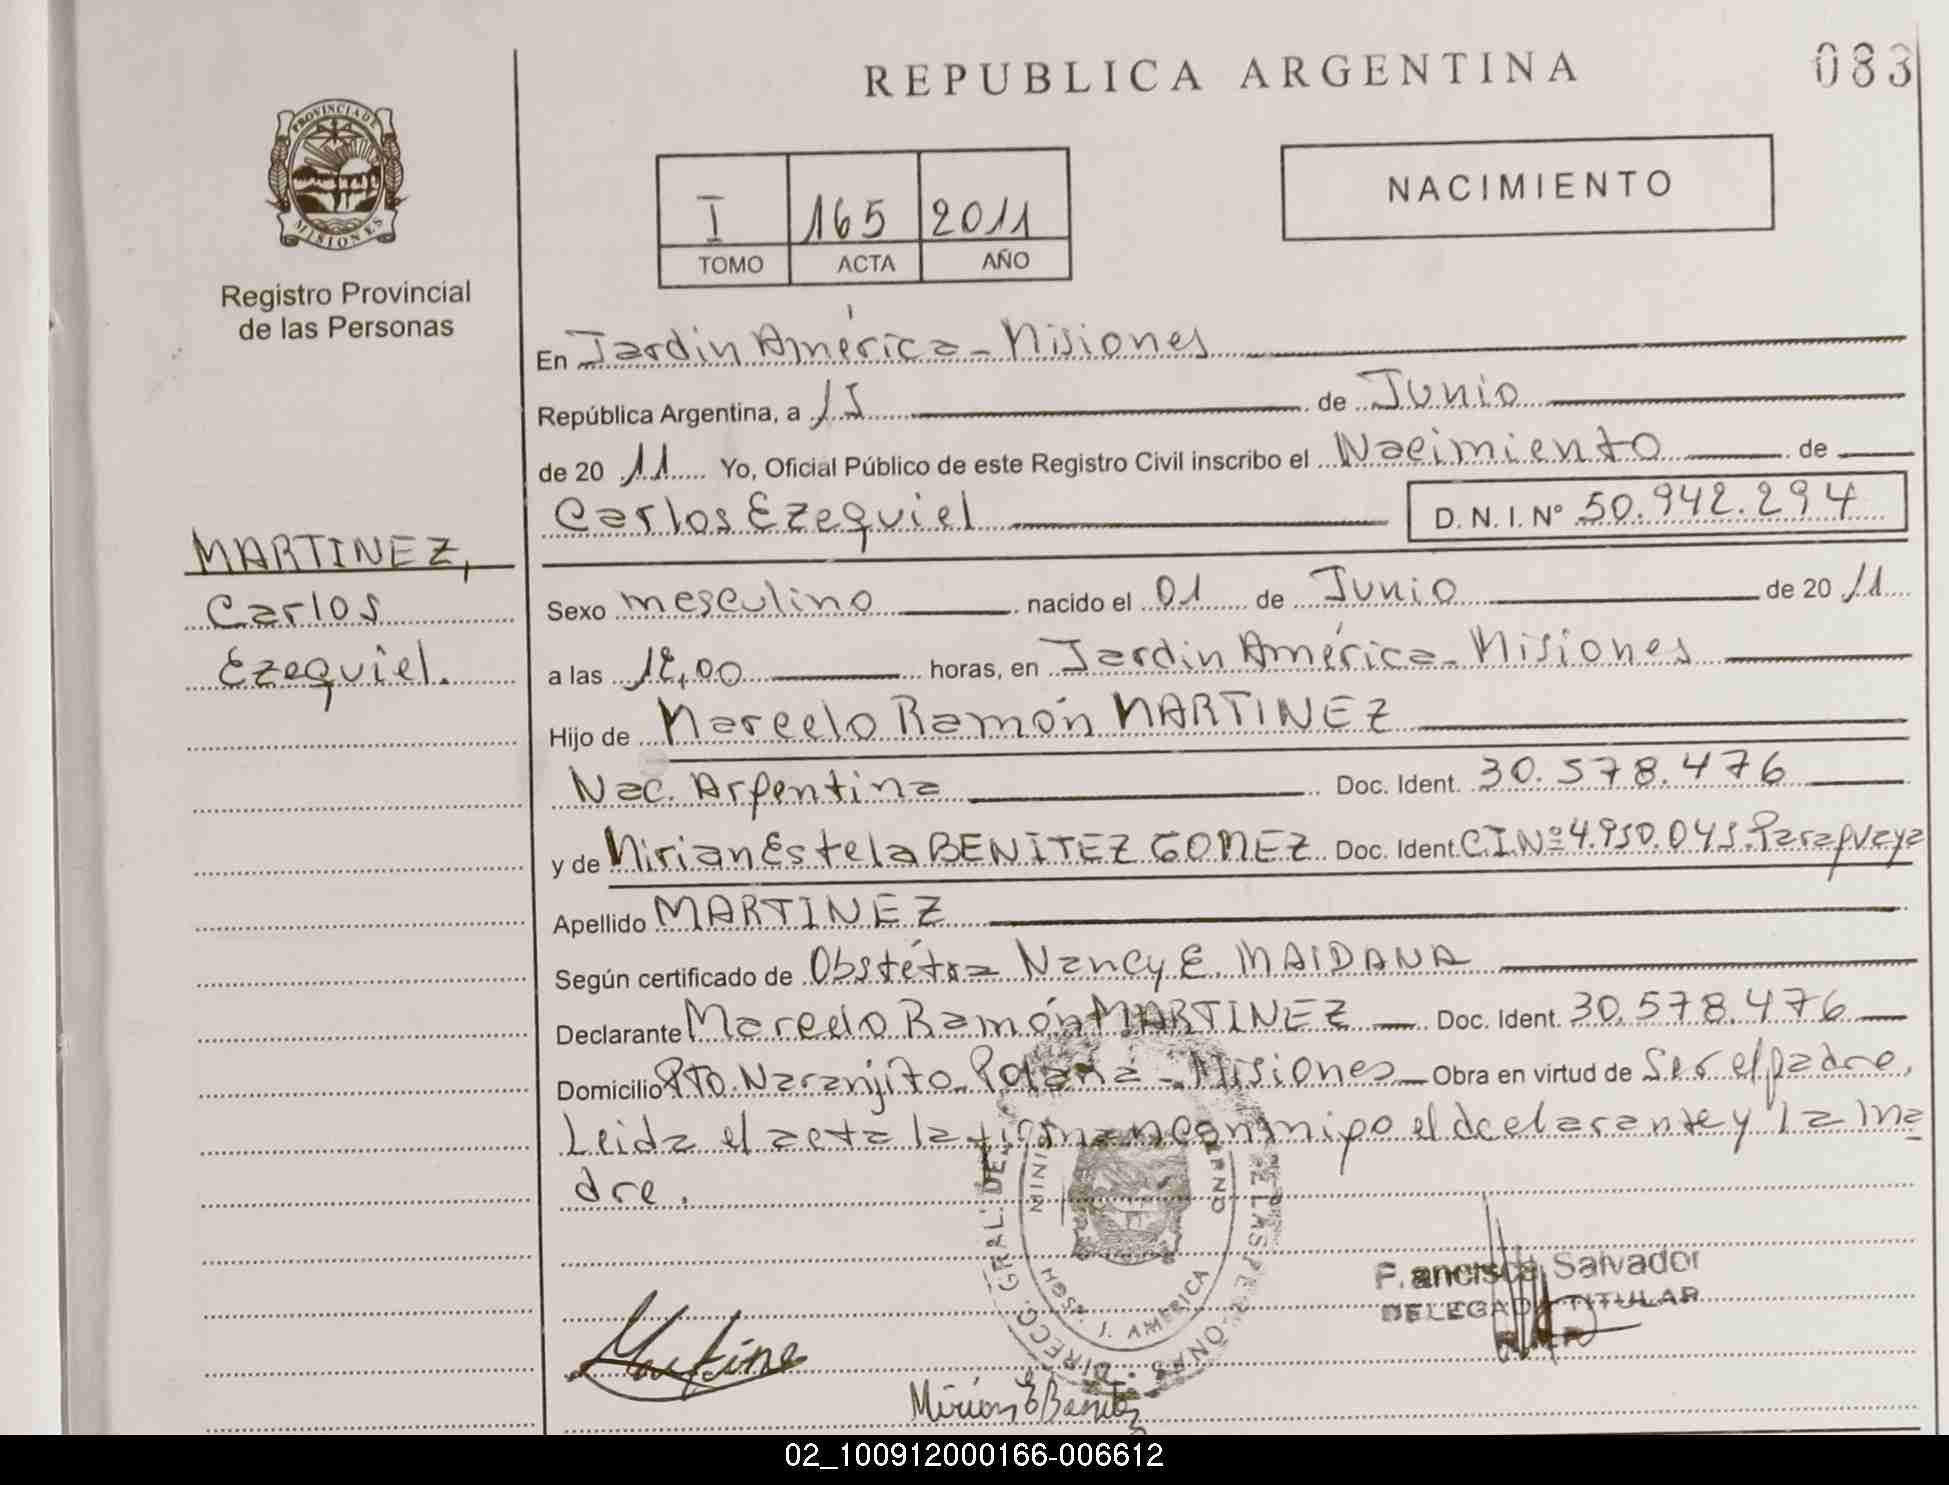 REPUBLICA ARGENTINA
083
PROVINCIA DE
MISIONES
Registro Provincial
de las Personas
I 165 2011
TOMO ACTA AÑO
NACIMIENTO
MARTINEZ,
Carlos
Ezequiel.
En Jardín América - Misiones
República Argentina, a 15 de Junio
de 20 11 Yo, Oficial Público de este Registro Civil inscribo el Nacimiento de
Carlos Ezequiel D. N. I. Nº 50.942.294
Sexo masculino nacido el 01 de Junio de 20 11
a las horas, en Jardín América - Misiones
Hijo de Marcelo Ramón MARTINEZ
Nac. Argentina Doc. Ident. 30.578.476
y de Mirian Estela BENITEZ GOMEZ Doc. Ident. C.I.Nº 4.950.045. Paraguaya
Apellido MARTINEZ
Según certificado de Obstétra Nancy E. MAIDANA
Declarante Marcelo Ramón MARTINEZ Doc. Ident. 30.578.476
Domicilio Pto. Naranjito - Misiones Obra en virtud de Ser el padre,
Leida el acta la firman conmigo el declarante y la ma
dre.
DIRECC. GRAL. DE LAS PERSONAS
J. AMERICA
Salvador
DELEGADA TITULAR
Mirian E Benitez
02_100912000166-006612